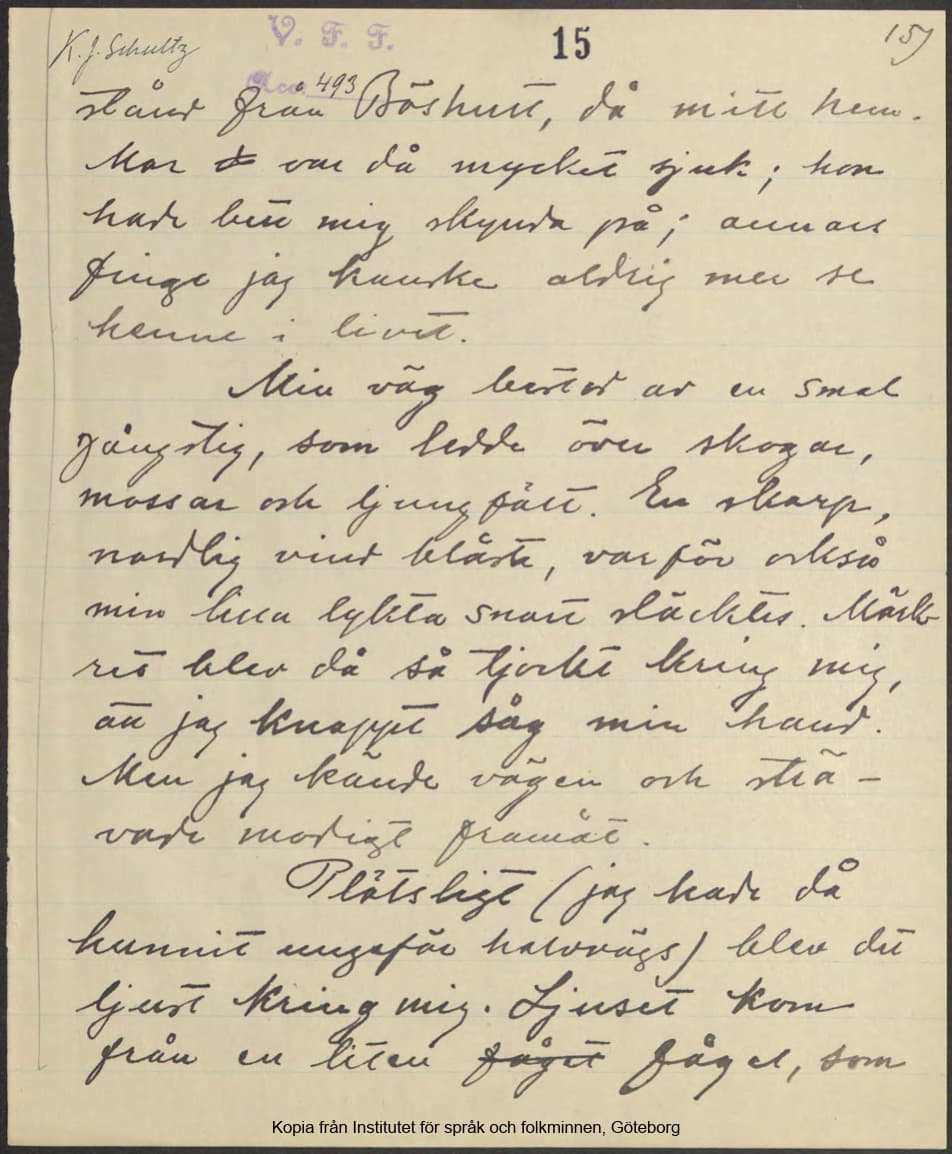 K. J. Schultz
V. F. F.
15
157
Acc. 493
stånd från Böshult, då mitt hem.
Mor var då mycket sjuk; hon
hade bett mig skynda på; annars
finge jag kanske aldrig mer se
henne i livet.
Min väg bestod av en smal
gångstig, som ledde över skogar,
mossar och ljungfält. En skarp,
nordlig vind blåste, varför också
min lilla lykta snart släcktes. Mörk-
ret blev då så tjockt kring mig,
att jag knappt såg min hand.
Men jag kände vägen och strä-
vade modigt framåt.
Plötsligt (jag hade då
hunnit ungefär halvvägs) blev det
ljust kring mig. Ljuset kom
från en liten fågel fågel, som
Kopia från Institutet för språk och folkminnen, Göteborg